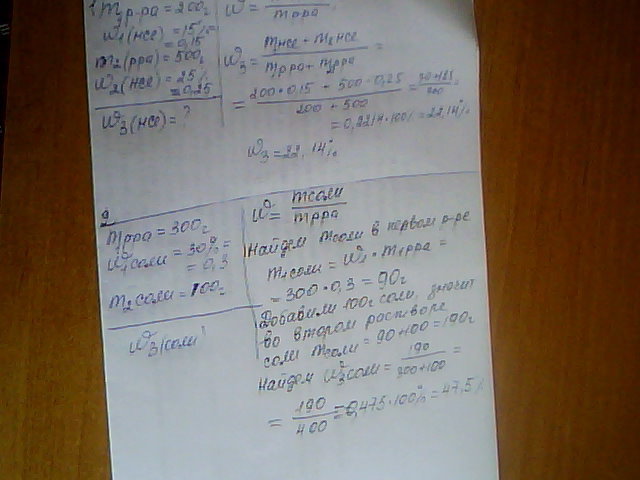 1 m₁р-ра = 200г
w₁(нсе) = 15% =
= 0,15
m₂(рра) = 500г
w₂(нсе) = 25%
= 0,25
w₃(нсе) = ?
w =
mрра
w₃ = m₁нсе + m₂нсе / m₁рра + m₂рра =
= 200 · 0,15 + 500 · 0,25 / 200 + 500 =
= 0,2214 · 100% = 22,14%
w₃ = 22,14%
2
mрра = 300г
w₁соли = 30% =
= 0,3
m₂соли = 100г
w₃(соли)
w = mсоли / mрра
Найдем mсоли в первом р-ре
m₁соли = w₁ · m₁рра =
= 300 · 0,3 = 90г
Добавили 100г соли, значит
во втором растворе
соли mсоли = 90 + 100 = 190г
Найдем w₃соли = 190 / 300 + 100 =
= 190 / 400 = 0,475 · 100% = 47,5%